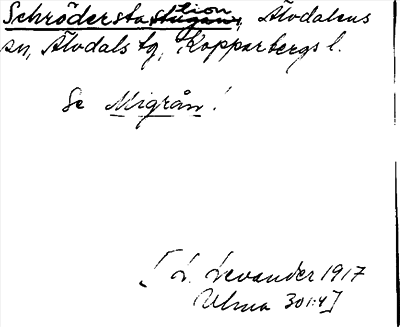 Schröderstastion, Älvdalens
sn, Älvdals tg, Kopparbergs l.
Se Migrån!
[L. Levander 1917
Ulma 301:4]